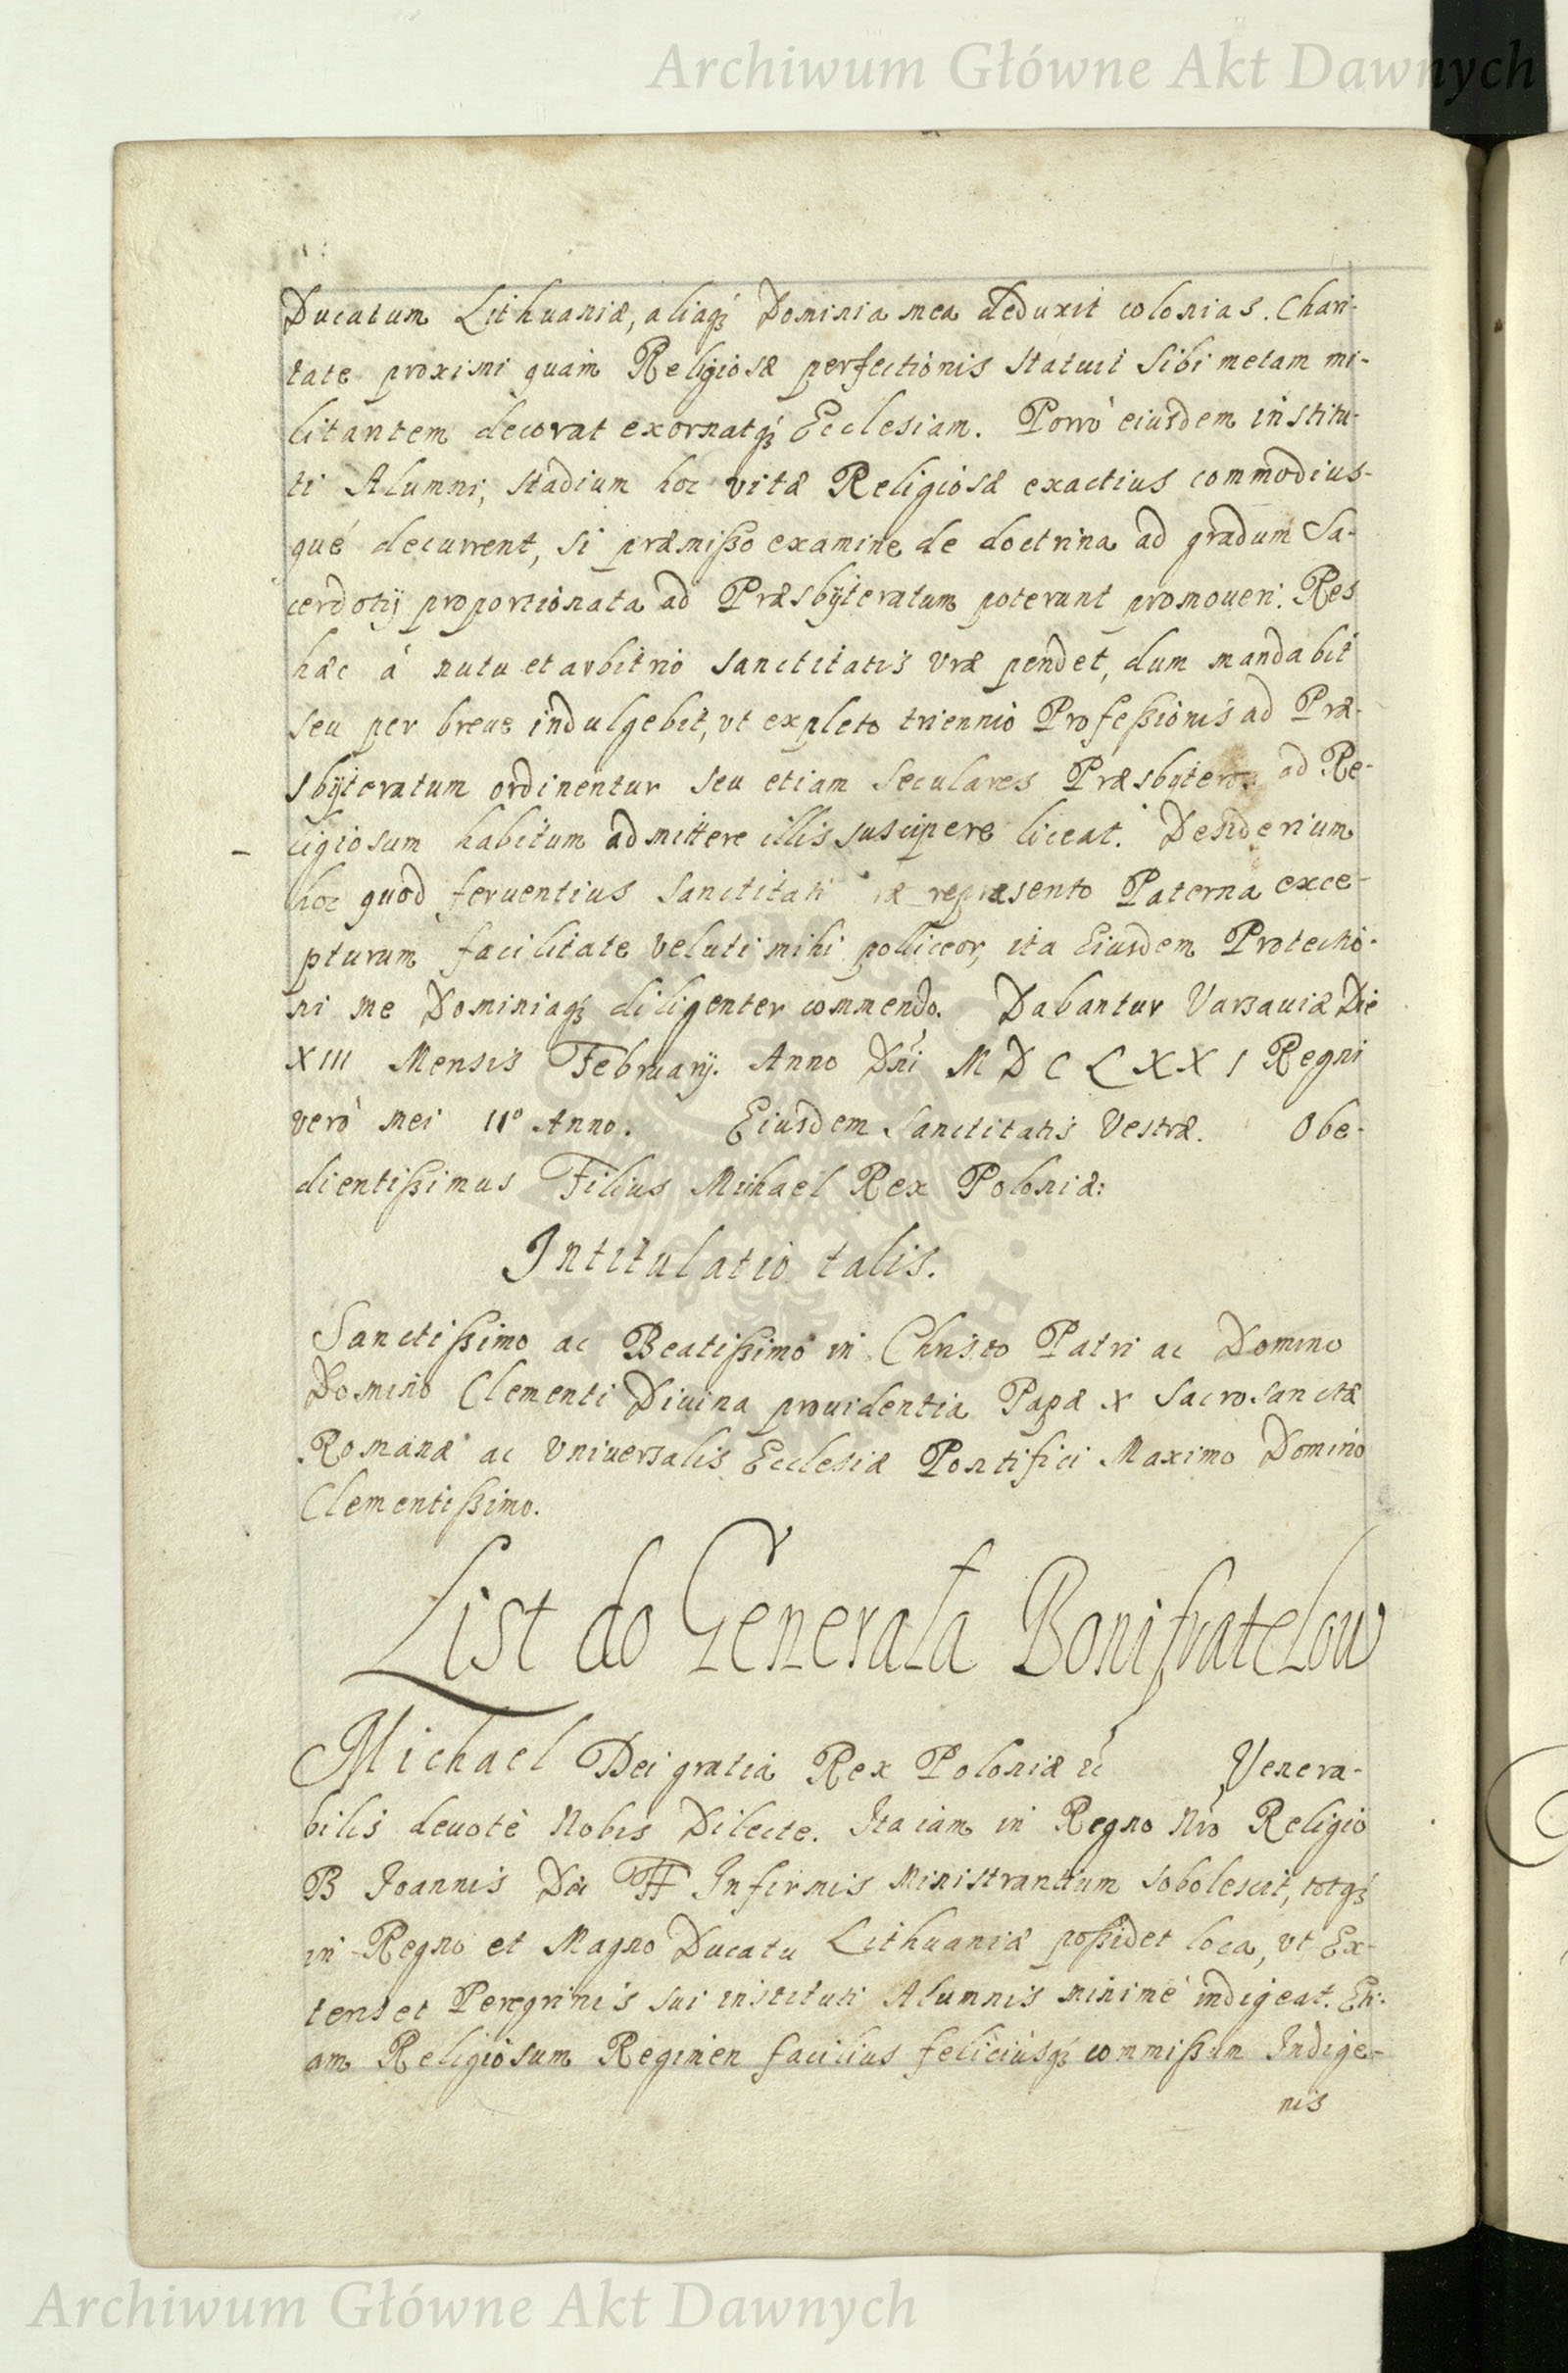 Archiwum Główne Akt Dawnych
Ducatum Lithuaniæ, aliaqȝ Dominia mea deduxit colonias. Chari-
tate proximi quàm Religiosæ perfectionis statuit sibi metam mi-
litantem decorat exornatqȝ Ecclesiam. Porrò eiusdem institu-
ti Alumni, stadium hoc vitæ Religiosæ exactius commodius-
qué decurrent, si præmißo examine de doctrina ad gradum Sa-
cerdotij proportionata ad Præsbÿteratum poterunt promoueri. Res
hæc à nutu et arbitrio Sanctitatis Vræ pendet, dum mandabit
seu per breue indulgebit, vt expleto triennio Profeßionis ad Præ-
sbÿteratum ordinentur seu etiam seculares Præsbyteros ad Re-
ligiosum habitum admittere illis suscipere liceat. Desiderium
hoc quod feruentius Sanctitati ræ repræsento Paterna exce-
pturum facilitate veluti mihi polliceor, ita Eiusdem Protectio-
ni me Dominiaqȝ diligenter commendo. Dabantur Varsauiæ Die
XIII Mensis Februarij. Anno Dni M D C L X X I Regni
verò mei II° Anno. Eiusdem Sanctitatis Vestræ. Obe-
dientißimus Filius Michael Rex Poloniæ:
Intitulatio talis.
Sanctißimo ac Beatißimo in Christo Patri ac Domino
Domino Clementi Diuina prouidentia Papæ X Sacrosanctæ
Romanæ ac Vniuersalis Ecclesiæ Pontifici Maximo Domino
Clementißimo.
List do Generała Bonifratelow
Michael Dei gratia Rex Poloniæ &c Venera-
bilis deuotè Nobis Dilecte. Ita iam in Regno Nro Religio
B Ioannis Dei FF Infirmis Ministrantium sobolescit, totqȝ
in Regno et Magno Ducatu Lithuaniæ poßidet loca, vt Ex-
teris et Peregrinis sui instituti Alumnis minimè indigeat. Eti-
am Religiosum Regimen facilius feliciusqȝ commißum Indige-
nis
Archiwum Główne Akt Dawnych